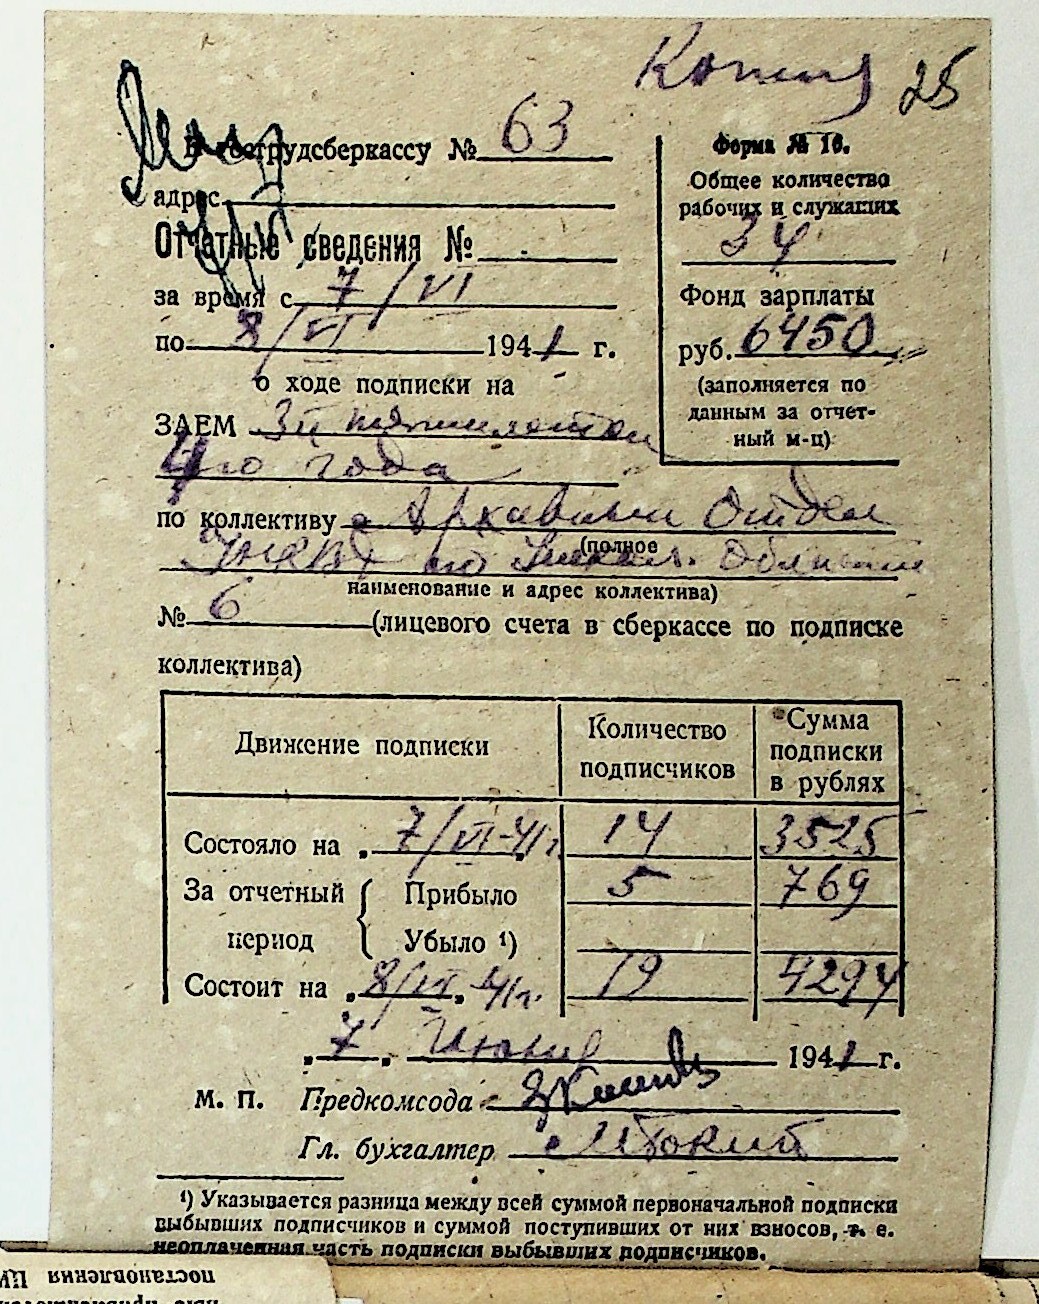 Копия 25
В гострудсберкассу № 63
адрес
Отчетные сведения №
за время с 7/VI
по 8/VI 1941 г.
о ходе подписки на
ЗАЕМ 3й пятилетки
4го года
Форма № 16.
Общее количество
рабочих и служащих
34
Фонд зарплаты
руб. 6450
(заполняется по
данным за отчет-
ный м-ц)
по коллективу Архивный Отдел
(полное
УНКВД по Области
наименование и адрес коллектива)
№ 6 (лицевого счета в сберкассе по подписке
коллектива)
Движение подписки Количество подписчиков Сумма подписки в рублях
Состояло на 7/VI-41г. 14 3525
За отчетный период Прибыло 5 769
Убыло ¹)
Состоит на „8/VI„ 41г. 19 4294
„7„ Июня 1941 г.
М. П. Предкомсода
Гл. бухгалтер
¹) Указывается разница между всей суммой первоначальной подписки
выбывших подписчиков и суммой поступивших от них взносов, т. е.
неоплаченная часть подписки выбывших подписчиков.
постановления